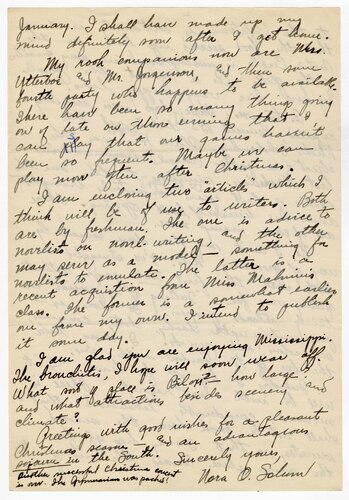 January. I shall have made up my
mind definitely soon after I get home.
My rook companions now are Mrs.
Utterbor and Mr. Jorgenson, and then some
fourth party who happens to be available.
There have been so many things going
on of late on those evenings that I
can say that our games haven't
been so frequent. Maybe we can
play more often after Christmas.
I am enclosing two "articles" which I
think will be of use to writers. Both
are by freshmen. The one is advice to
novelists on novel-writing, and the other
may serve as a model - something for
novelists to emulate. The latter is a
recent acquisition from Miss
class. The former is a somewhat earlier
one from my own. I intend to publish
it some day.
I am glad you are enjoying Mississippi.
The bronchitis, I hope will soon wear off.
What sort of place is Biloxi - how large?
and what attractions besides scenery and
climate?
Greetings with good wishes for a pleasant
Christmas season - and an advantageous
sojourn in the South.
Sincerely yours,
Nora O. Solum
Another successful Christmas concert
is over. The gymnasium was packed!